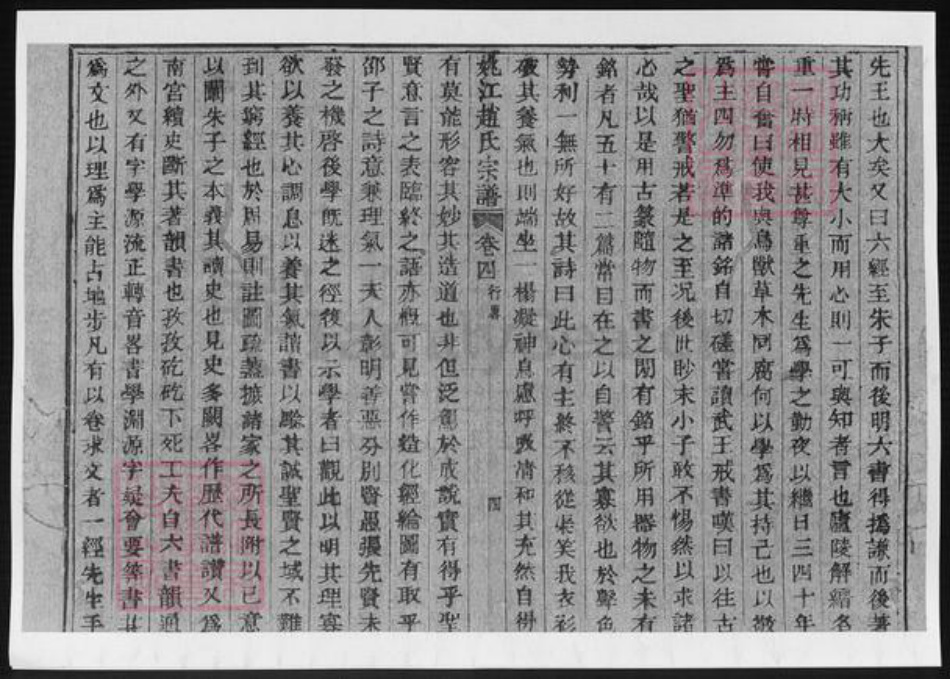 先王也大矣又曰六經至朱子而後明六書得撝謙而後著
其功稱雖有大小而用心則一可與知者言也廬陵解縉名
重一時相見甚尊重之先生爲學之勤夜以繼日三四十年
嘗自奮曰使我與鳥獸草木同腐何以學爲其持己也以敬
爲主四勿爲準的諸銘自切磋嘗讀武王戒書嘆曰以往古
之聖猶警戒若是之至况後世眇末小子敢不惕然以求諸
心哉以是用古篆隨物而書之閒有銘乎所用器物之未有
銘者凡五十有二篇常目在之以自警云其寡欲也於聲色
勢利一無所好故其詩曰此心有主終不移從渠笑我衣衫
破其養氣也則端坐一榻凝神息慮呼吸清和其充然自得
姚江趙氏宗譜 卷四 行畧 四
有莫能形容其妙其造道也非但泛窺於成說實有得乎聖
賢意言之表臨終之語亦概可見嘗作造化經綸圖有取乎
邵子之詩意兼理氣一天人彰明善惡分別賢愚擴先賢未
發之機啓後學旣迷之徑後以示學者曰觀此以明其理寡
欲以養其心調息以養其氣讀書以驗其誠聖賢之域不難
到其窮經也於周易則註圖疏蓋摭諸家之所長附以己意
以闡朱子之本義其讀史也見史多闕畧作歷代譜讚又爲
南宮續史斷其著韻書也孜孜矻矻下死工夫自六書韻通
之外又有字學源流正轉音畧書學淵源字疑會要等書其
爲文也以理爲主能占地步凡有以卷求文者一經先生手